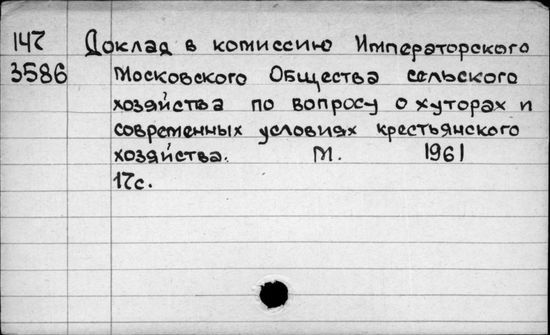 147 Доклад в комиссию Императорского
3586 Московского Общества сельского
хозяйства по вопросу о хуторах и
современных условиях крестьянского
хозяйства. М. 1961
17с.